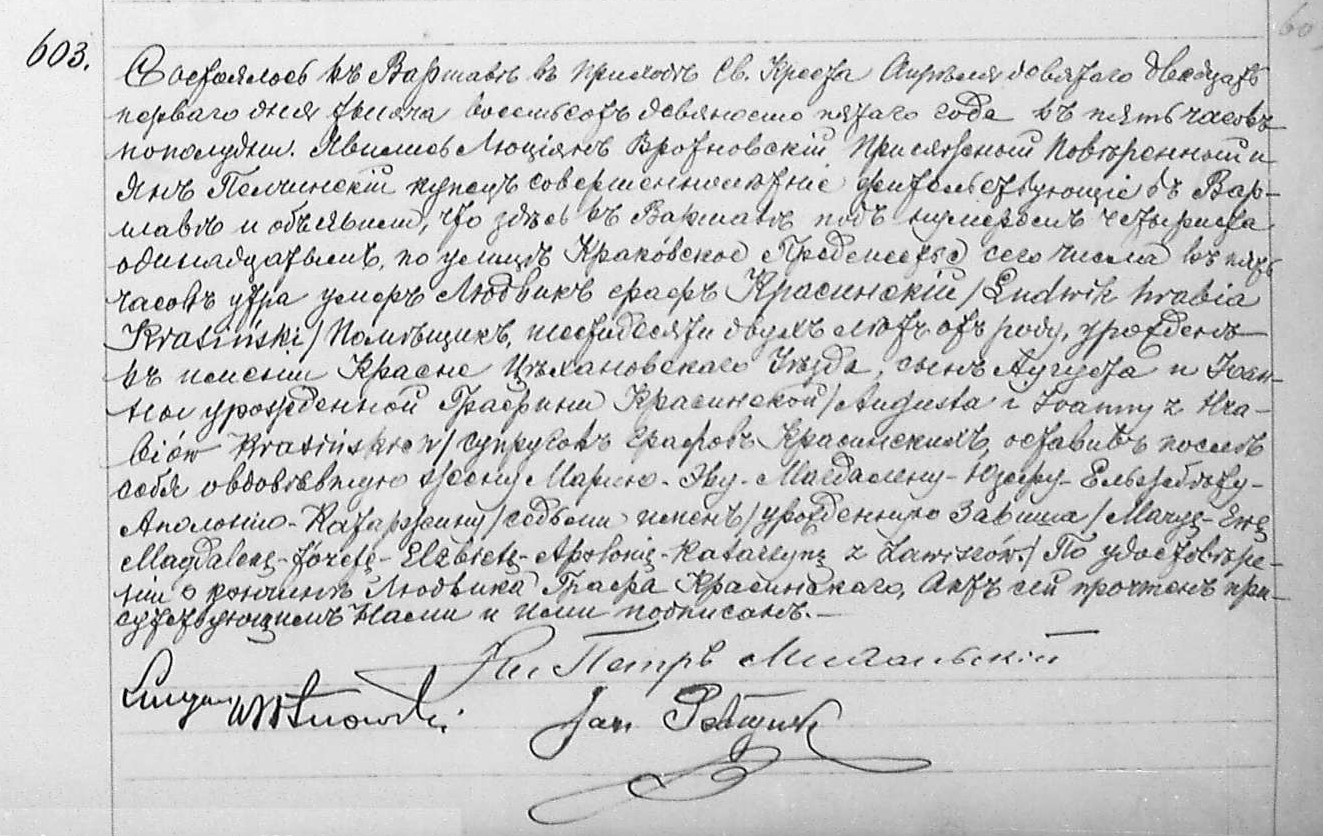 603.
Состоялось въ Варшавѣ въ приходѣ Св. Креста Апрѣля девятаго двадцать
перваго дня тысяча восемьсотъ девяносто пятаго года въ пять часовъ
пополудни. Явились Люціянъ Вротновскій Присяжный Повѣренный и
Янъ Пелчинскій купецъ совершеннолѣтніе жительствующіе въ Вар-
шавѣ и объявили, что здѣсь въ Варшавѣ подъ нумеромъ четыриста
одинадцатымъ, по улицѣ Краковское Предместье сего числа въ пять
часовъ утра умеръ Людвикъ графъ Красинскій /Ludwik hrabia
Krasiński/ Помѣщикъ, шестидесяти двухъ лѣтъ отъ роду, урожденъ
въ имѣніи Красне Цѣхановскаго Уѣзда, сынъ Августа и Іоан-
ны урожденной Графини Красинской /Augusta i Joanny z Hra-
biów Krasińskich/ супруговъ графовъ Красинскихъ, оставивъ послѣ
себя овдовѣвшую жену Марію-Эву-Магдалену-Юзефу-Ельжбѣту-
Аполонію-Катаржину /седьми именъ/ урожденную Завиша /Maryę-Ewę
Magdalenę-Józefę-Elżbietę-Apolonię-Katarzynę z Zawiszów./ По удостовѣре-
ніи о кончинѣ Людвика Графа Красинскаго, Актъ сей прочтенъ при-
сутствующимъ Нами и ими подписанъ.-
Кс. Петръ
Lucyan Wrotnowski.
Jan